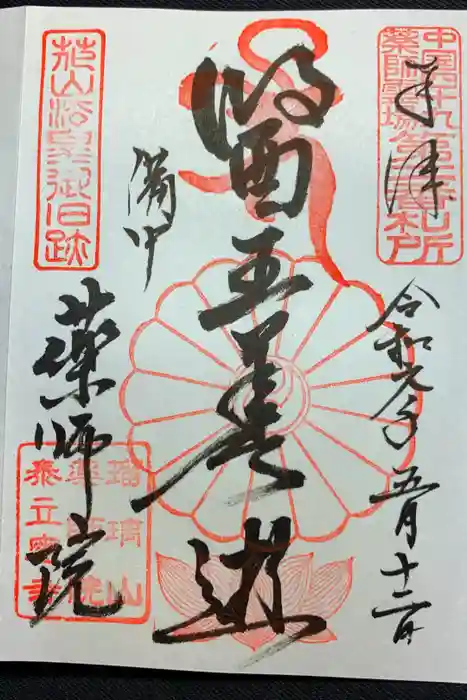 中国四十九
薬師霊場第二番札所
奉拝
令和元年五月十二日
醫王善逝
備中
花山法皇御旧跡
薬師院
瑠璃山
薬師院
泰立寺